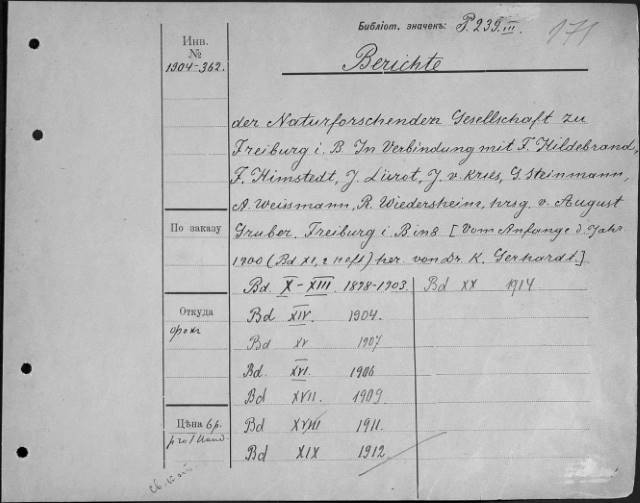 Библіот. значекъ: P. 239. III.
171
Инв.
№
1904-362.
Berichte
der Naturforschenden Gesellschaft zu
Freiburg i. B. In Verbindung mit F. Hildebrand,
F. Himstedt, J. Lürot, J. v. Kries, G. Steinmann,
A. Weismann, R. Wiedersheim, hrsg. v. August
По заказу
Gruber. Freiburg i. B in 8 [Vom Anfange d. Jahr.
1900 (Bd XI, 2 Heft) her. von Dr. K. Gerhardt.]
Bd. X-XIII 1898-1903. Bd XX 1914
Откуда
Bd XIV. 1904.
Bd XV 1907
Bd. XVI. 1906
Bd XVII. 1909
Цѣна 6 р.
pro 1 Band.
Bd XVIII 1911.
Bd XIX 1912.